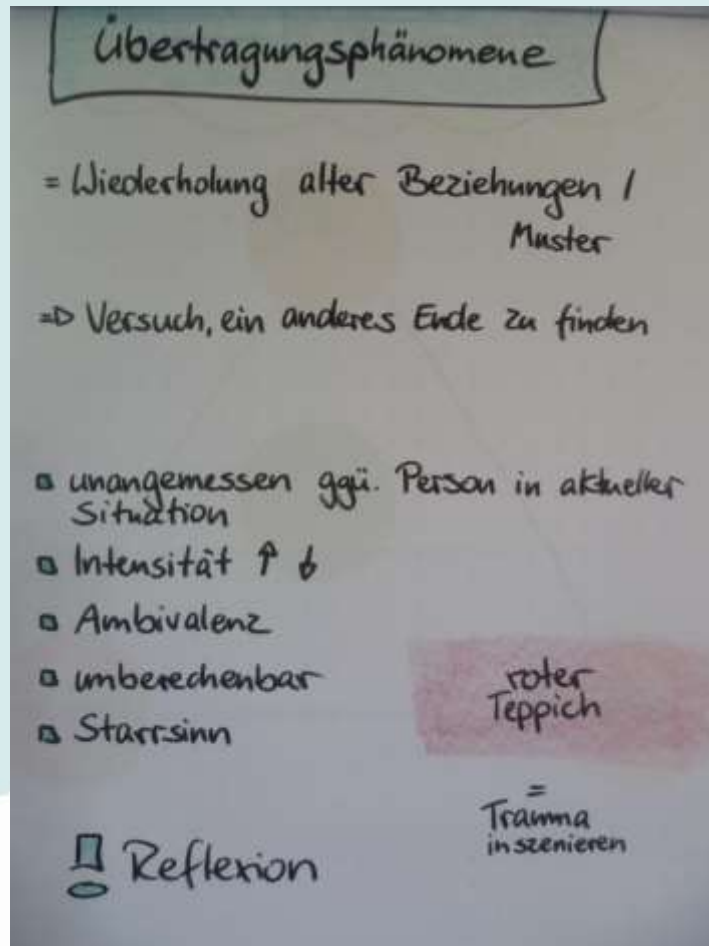 Übertragungsphänomene
= Wiederholung alter Beziehungen /
Muster
=> Versuch, ein anderes Ende zu finden
unangemessen ggü. Person in aktueller
Situation
Intensität ↑ ↓
Ambivalenz
unberechenbar
Starrsinn
roter
Teppich
=
Trauma
inszenieren
! Reflexion